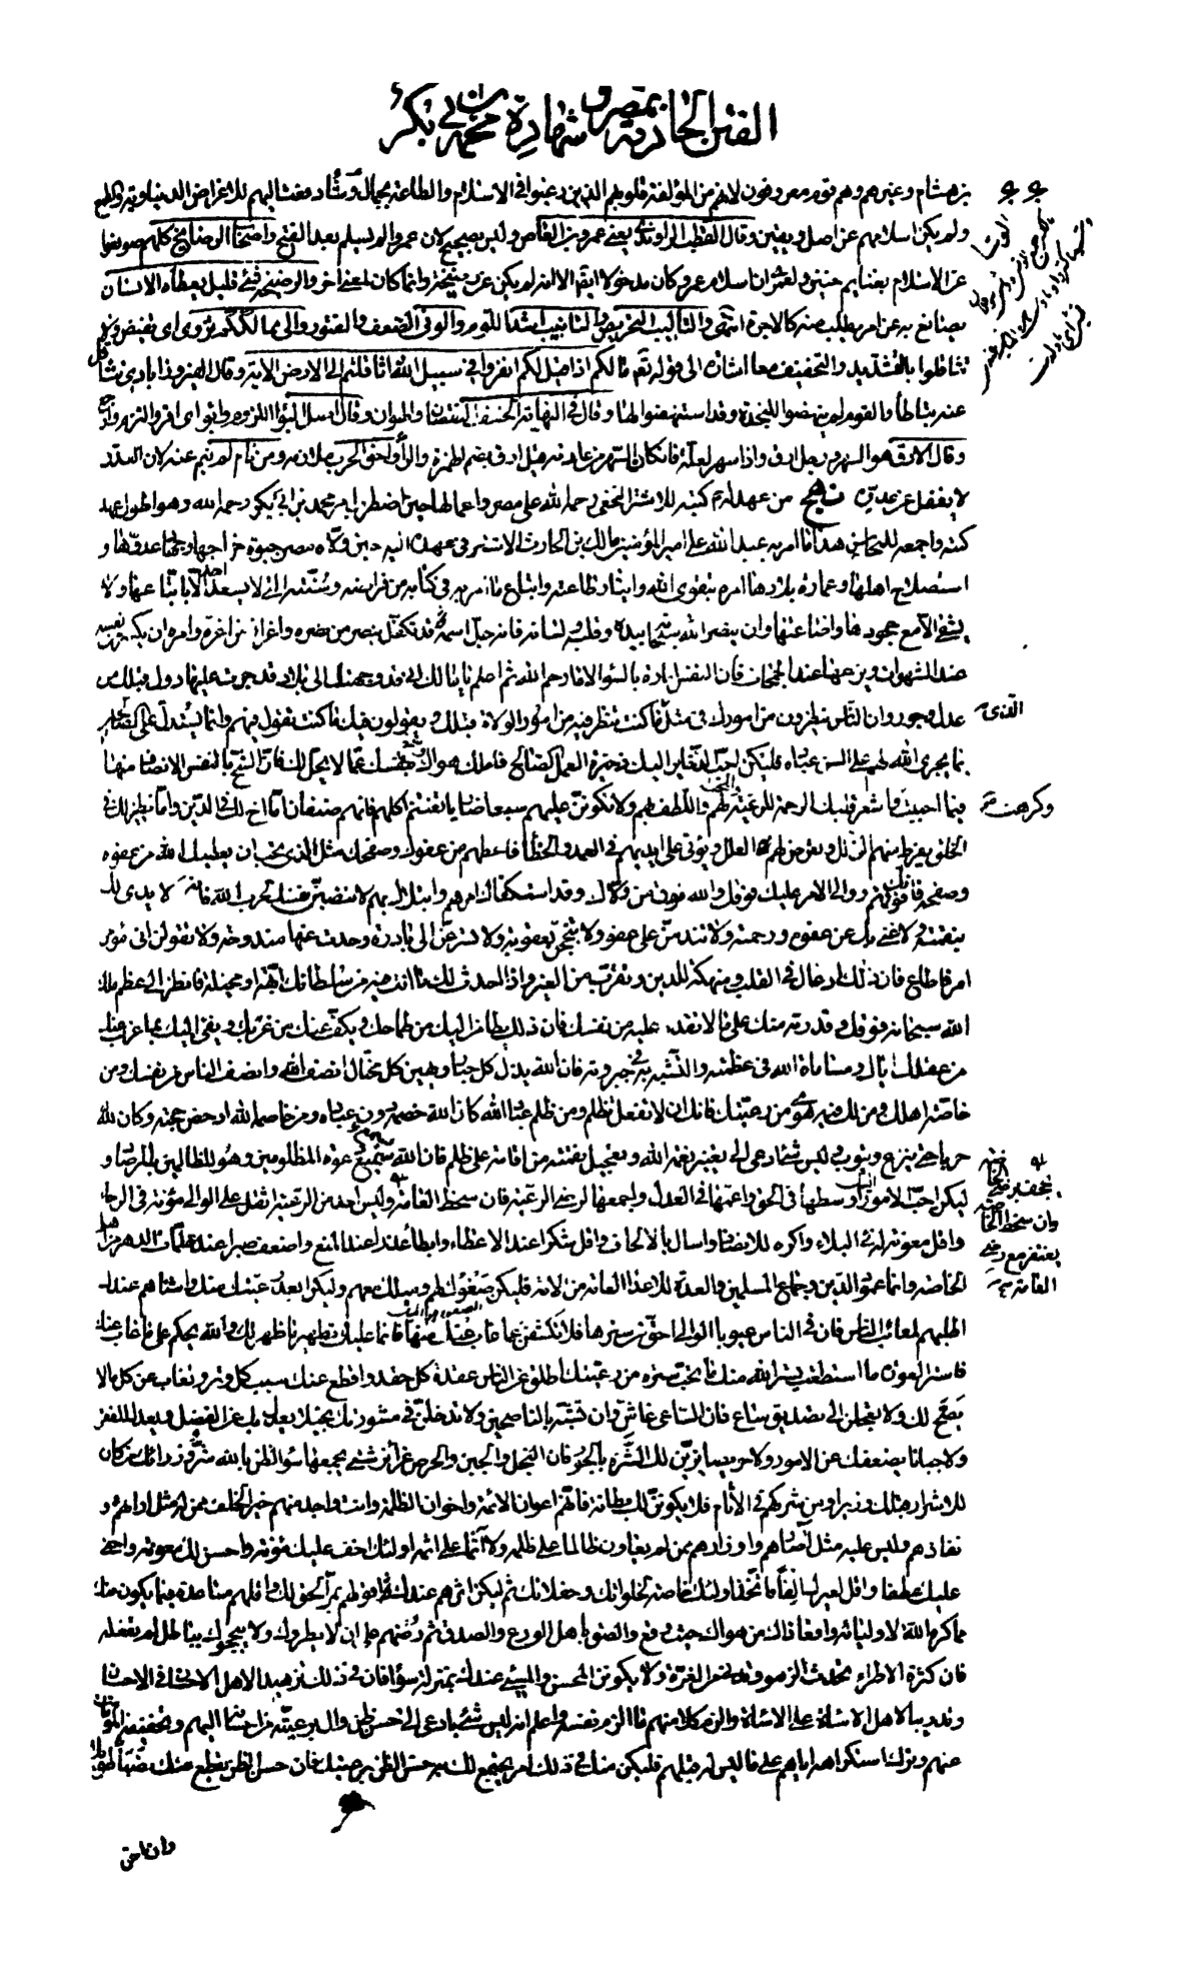 الفتن الحادثة بمصر و شهادة محمد بن أبي بكر
بن هشام وغيرهم وهم قوم معروفون لأنهم من المؤلفة قلوبهم الذين رغبوا في الاسلام والطاعة بجمال وشاء دفعت اليهم للاغراض الدنياوية والطمع
ولم يكن اسلامهم عن اصل ويقين وقال القطب الراوندي يعني عمرو بن العاص وليس بصحيح لان عمرو لم يسلم بعد الفتح واصحاب الرضائخ كلهم صونعوا
عن الاسلام بغنايم حنين ولعمري ان اسلام عمرو كان مدخولا ايضا الا انه لم يكن عن رضيخة وانما كان لمعنى اخر والرضيخة شيء قليل يعطاه الانسان
يصانع به عن امر يطلب منه كالاجرة انتهى والتأليب التحريض والتأنيب اشد اللوم والونى الضعف والفتور والى ممالككم تزوى اي تقبض ولا
تثاقلوا بالتشديد والتخفيف معا اشارة الى قوله تع ما لكم اذا قيل لكم انفروا في سبيل الله اثاقلتم الى الارض الاية وقال الفيروزابادي تثاقل
عنه تباطأ والقوم لم ينهضوا للنجدة وقد استنهضوا لها وقال في النهاية الخسف النقصان والهوان وقال اصل البواء اللزوم وابوء اي اقر والتزم وارجع
وقال الارق هو السهر ورجل ارق اذا سهر لعلة فان كان السهر من عادته قيل ارق بضم الهمزة والراء واخو الحرب ملازمه ومن نام لم ينم عنه لان العدو
لا يغفل عن عدوه نهج من عهد له ع كتبه للاشتر النخعي رحمه الله على مصر واعمالها حين اضطرب امر محمد بن ابي بكر رحمه الله وهو اطول عهد
كتبه واجمعه للمحاسن هذا ما امر به عبد الله علي امير المؤمنين مالك بن الحارث الاشتر في عهده اليه حين ولاه مصر جبوة خراجها وجهاد عدوها و
استصلاح اهلها وعمارة بلادها امره بتقوى الله وايثار طاعته واتباع ما امر به في كتابه من فرايضه وسننه التي لا يسعد احد الا باتباعها ولا
يشقى الا مع جحودها واضاعتها وان ينصر الله سبحانه بيده وقلبه ولسانه فانه جل اسمه قد تكفل بنصر من نصره واعزاز من اعزه وامره ان يكسر من نفسه
عند الشهوات ويزعها عند الجمحات فان النفس امارة بالسوء الا ما رحم الله ثم اعلم يا مالك اني قد وجهتك الى بلاد قد جرت عليها دول قبلك من
عدل وجور وان الناس ينظرون من امورك في مثل ما كنت تنظر فيه من امور الولاة قبلك ويقولون فيك ما كنت تقول فيهم وانما يستدل على الصالحين
بما يجري الله لهم على السن عباده فليكن احب الذخاير اليك ذخيرة العمل الصالح فاملك هواك وشح بنفسك عما لا يحل لك فان الشح بالنفس الانصاف منها
فيما احببت واشعر قلبك الرحمة للرعية والمحبة لهم واللطف بهم ولا تكونن عليهم سبعا ضاريا تغتنم اكلهم فانهم صنفان اما اخ لك في الدين واما نظير لك في
الخلق يفرط منهم الزلل وتعرض لهم العلل ويؤتى على ايديهم في العمد والخطأ فاعطهم من عفوك وصفحك مثل الذي تحب ان يعطيك الله من عفوه
وصفحه فانك فوقهم ووالي الامر عليك فوقك والله فوق من ولاك وقد استكفاك امرهم وابتلاك بهم لا تنصبن نفسك لحرب الله فانه لا يدى لك
بنقمته ولا غنى بك عن عفوه ورحمته ولا تندمن على عفو ولا تبجحن بعقوبة ولا تسرعن الى بادرة وجدت عنها مندوحة ولا تقولن اني مؤمر
امر فاطاع فان ذلك ادغال في القلب ومنهكة للدين وتقرب من الغير واذا احدث لك ما انت فيه من سلطانك ابهة او مخيلة فانظر الى عظم ملك
الله سبحانه فوقك وقدرته منك على ما لا تقدر عليه من نفسك فان ذلك يطامن اليك من طماحك ويكف عنك من غربك ويفئ اليك بما عزب عنك
من عقلك اياك ومساماة الله في عظمته والتشبه به في جبروته فان الله يذل كل جبار ويهين كل مختال انصف الله وانصف الناس من نفسك ومن
خاصة اهلك ومن لك فيه هوى من رعيتك فانك ان لا تفعل تظلم ومن ظلم عباد الله كان الله خصمه دون عباده ومن خاصمه الله ادحض حجته وكان لله
حربا حتى ينزع ويتوب وليس شئ ادعى الى تغيير نعمة الله وتعجيل نقمته من اقامة على ظلم فان الله سميع دعوة المظلومين وهو للظالمين بالمرصاد و
ليكن احب الامور اليك اوسطها في الحق واعمها في العدل واجمعها لرضى الرعية فان سخط العامة وليس احد من الرعية اثقل على الوالي مؤنة في الرخاء
واقل معونة له في البلاء واكره للانصاف واسأل بالالحاف واقل شكرا عند الاعطاء وابطأ عذرا عند المنع واضعف صبرا عند ملمات الدهر من اهل
الخاصة وانما عمود الدين وجماع المسلمين والعدة للاعداء العامة من الامة فليكن صغوك لهم وميلك معهم وليكن ابعد رعيتك منك واشنأهم عندك
اطلبهم لمعائب الناس فان في الناس عيوبا الوالي احق من سترها فلا تكشفن عما غاب عنك منها فانما عليك تطهير ما ظهر لك والله يحكم على ما غاب عنك
فاستر العورة ما استطعت يستر الله منك ما تحب ستره من رعيتك اطلق عن الناس عقدة كل حقد واقطع عنك سبب كل وتر وتغاب عن كل ما لا
يصح لك ولا تعجلن الى تصديق ساع فان الساعي غاش وان تشبه بالناصحين ولا تدخلن في مشورتك بخيلا يعدل بك عن الفضل ويعدك الفقر
ولا جبانا يضعفك عن الامور ولا حريصا يزين لك الشره بالجور فان البخل والجبن والحرص غرائز شتى يجمعها سوء الظن بالله شر وزرائك من كان
للاشرار قبلك وزيرا ومن شركهم في الآثام فلا يكونن لك بطانة فانهم اعوان الاثمة واخوان الظلمة وانت واجد منهم خير الخلف ممن له مثل ارائهم و
نفاذهم وليس عليه مثل آصارهم واوزارهم ممن لم يعاون ظالما على ظلمه ولا آثما على اثمه اولئك اخف عليك مؤنة واحسن لك معونة واحنى
عليك عطفا واقل لغيرك الفا فاتخذ اولئك خاصة لخلواتك وحفلاتك ثم ليكن اثرهم عندك اقولهم بمر الحق لك واقلهم مساعدة فيما يكون منك
مما كره الله لاوليائه واقعا ذلك من هواك حيث وقع والصق باهل الورع والصدق ثم رضهم على ان لا يطروك ولا يبجحوك بباطل لم تفعله
فان كثرة الاطراء تحدث الزهو وتدني من الغرة ولا يكونن المحسن والمسيئ عندك بمنزلة سواء فان في ذلك تزهيدا لاهل الاحسان في الاحسان
وتدريبا لاهل الاساءة على الاساءة والزم كلا منهم ما الزم نفسه واعلم انه ليس شئ بادعى الى حسن ظن وال برعيته من احسانه اليهم وتخفيفه المؤنات
عنهم وترك استكراهه اياهم على ما ليس له قبلهم فليكن منك في ذلك امر يجتمع لك به حسن الظن برعيتك فان حسن الظن يقطع عنك نصبا طويلا
وكرهت
يجحف برضى الخاصة
وان سخط الخاصة
يغتفر مع رضى
العامة
وان احق